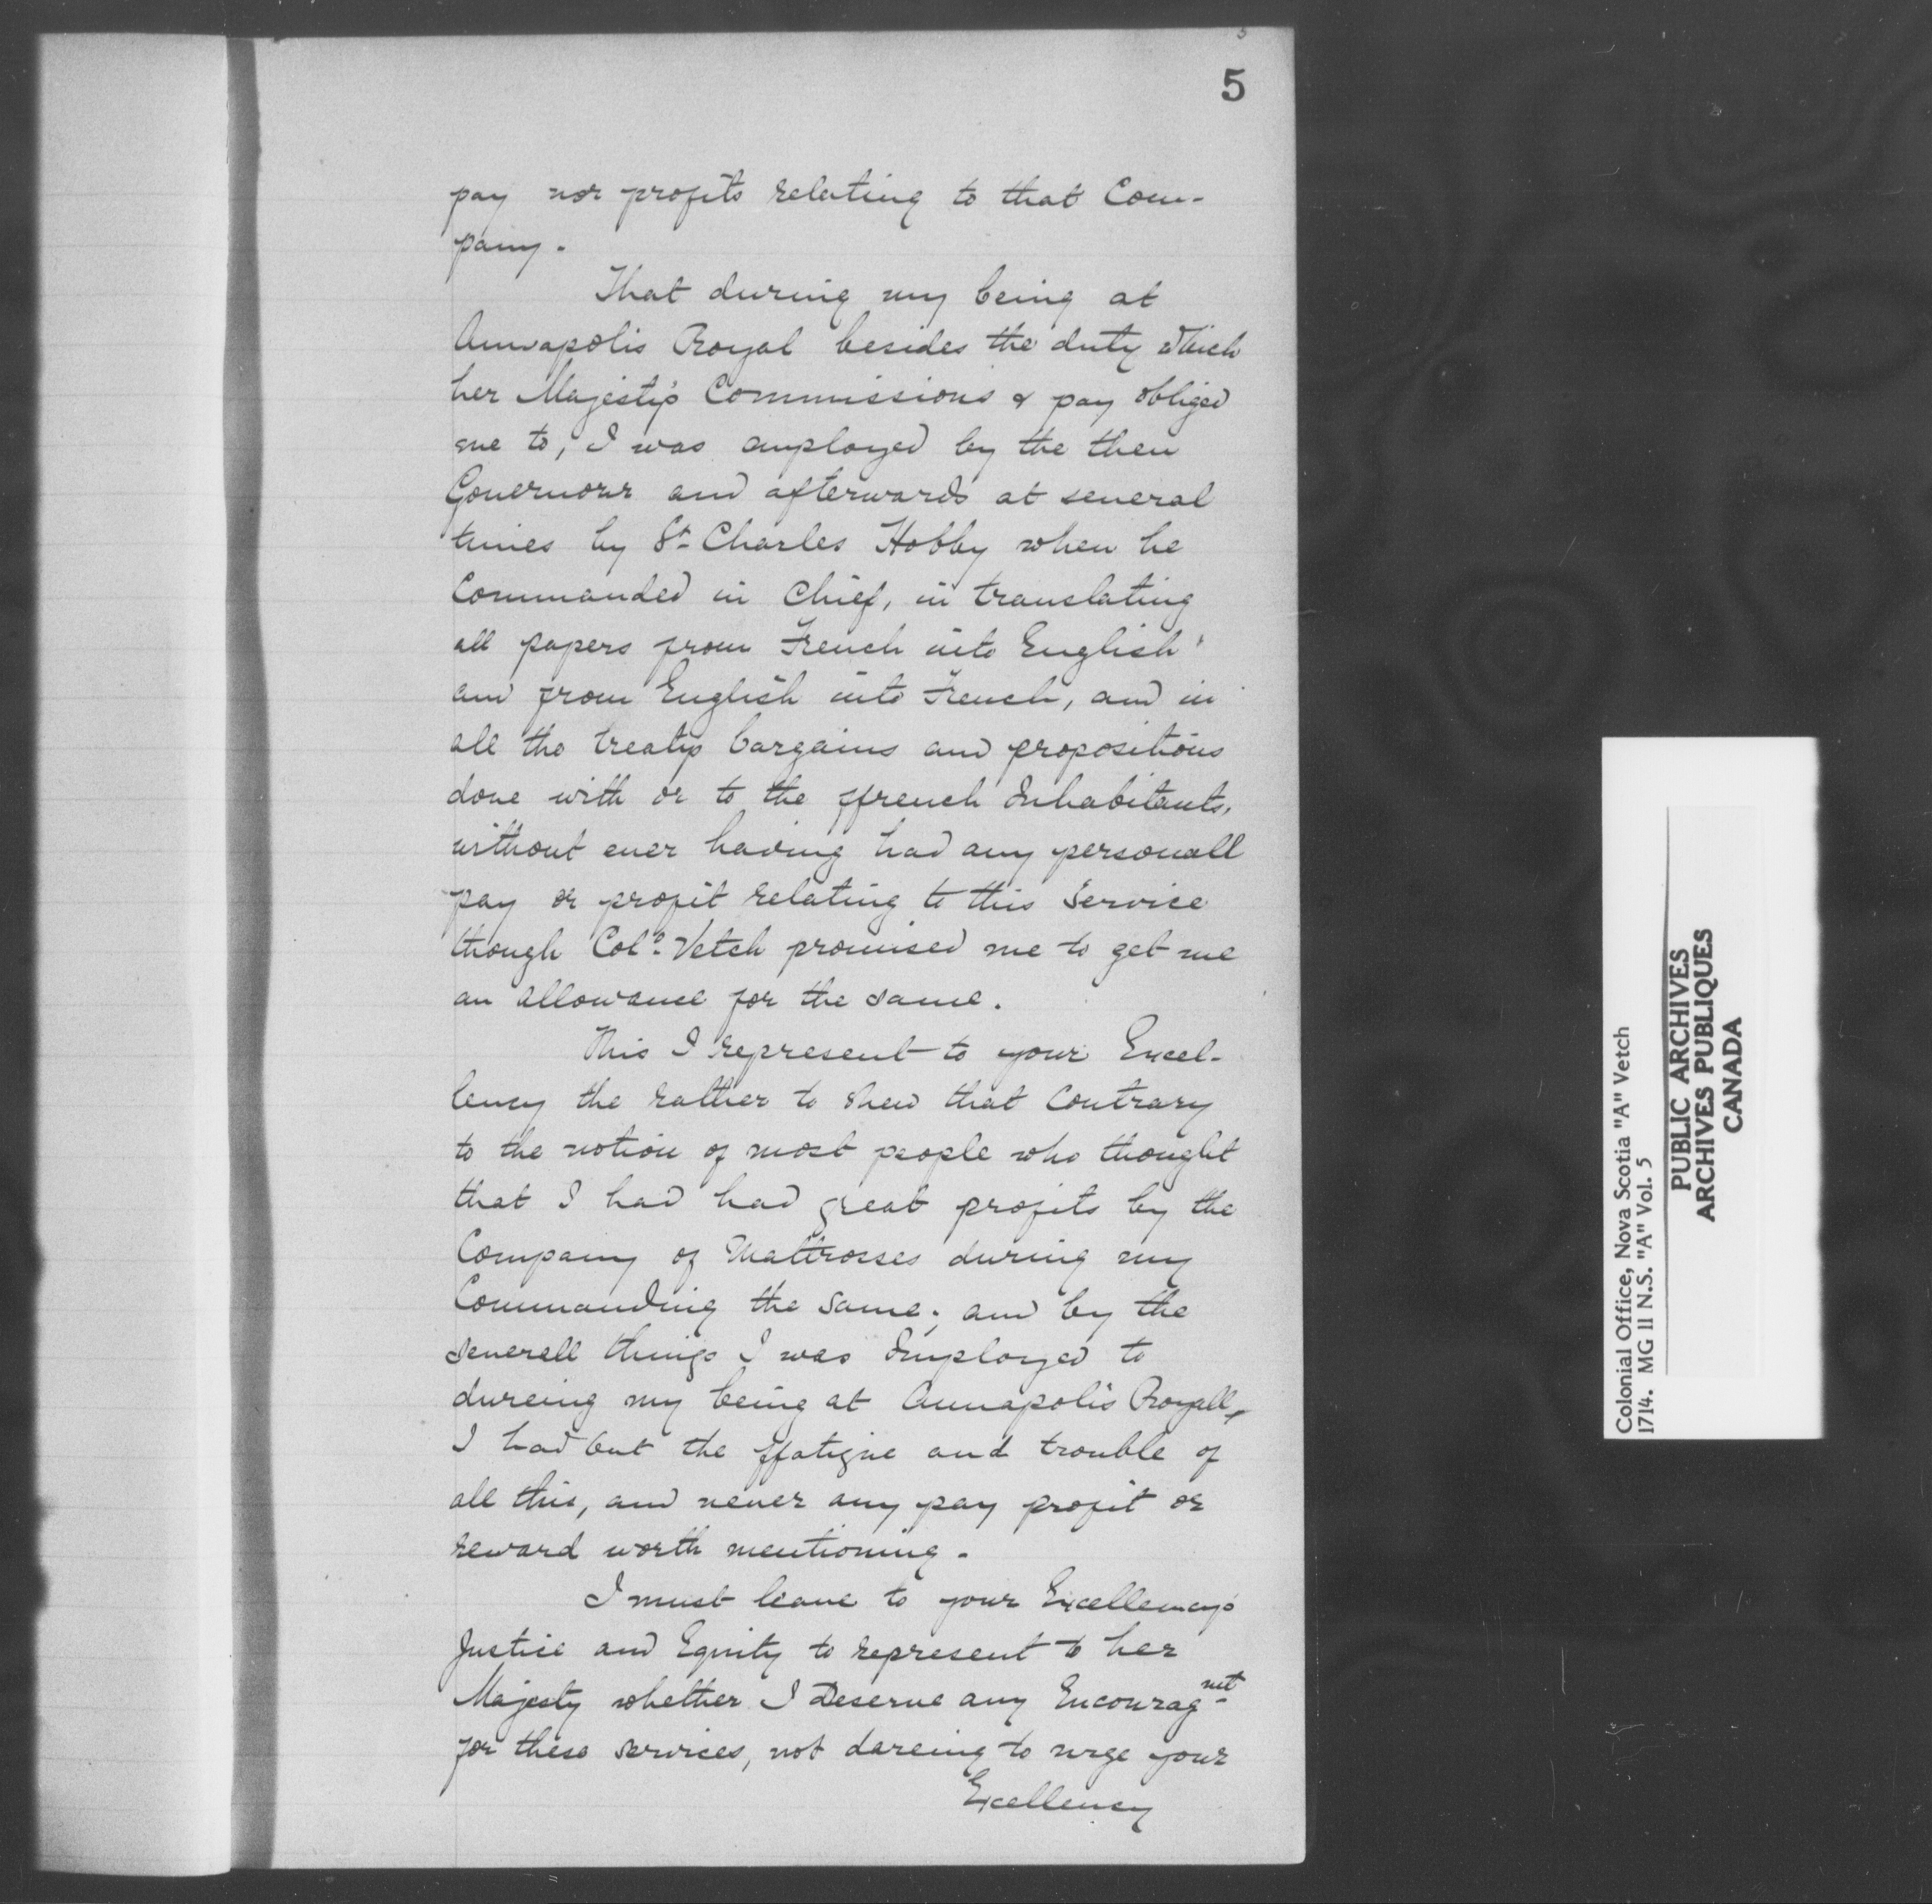 5
pay nor profits relating to that Com-
pany.
That during my being at
Annapolis Royal besides the duty which
her Majesty's Commissions & pay obliged
me to, I was employed by the then
Gouernour and afterwards at seueral
times by Sr Charles Hobby when he
Commanded in Chief, in translating
all papers from French into English
and from English into French, and in
all the treatys bargains and propositions
done with or to the ffrench Inhabitants,
without euer having had any personall
pay or profit relating to this Service
though Colo. Vetch promised me to get me
an allowance for the same.
This I represent to your Excel-
lency the rather to shew that Contrary
to the notion of most people who thought
that I had had great profits by the
Company of Mattrosses during my
Commanding the Same; and by the
Seuerall things I was Imployed to
dureing my being at Annapolis Royall,
I had but the ffatigue and trouble of
all this, and neuer any pay profit or
reward worth mentioning.
I must leaue to your Excellency's
Justice and Equity to represent to her
Majesty whether I Deserue any Encouragmt
for these Services, not dareing to urge your
Excellency
Colonial Office, Nova Scotia "A" Vetch
1714. MG 11 N.S. "A" Vol. 5
PUBLIC ARCHIVES
ARCHIVES PUBLIQUES
CANADA